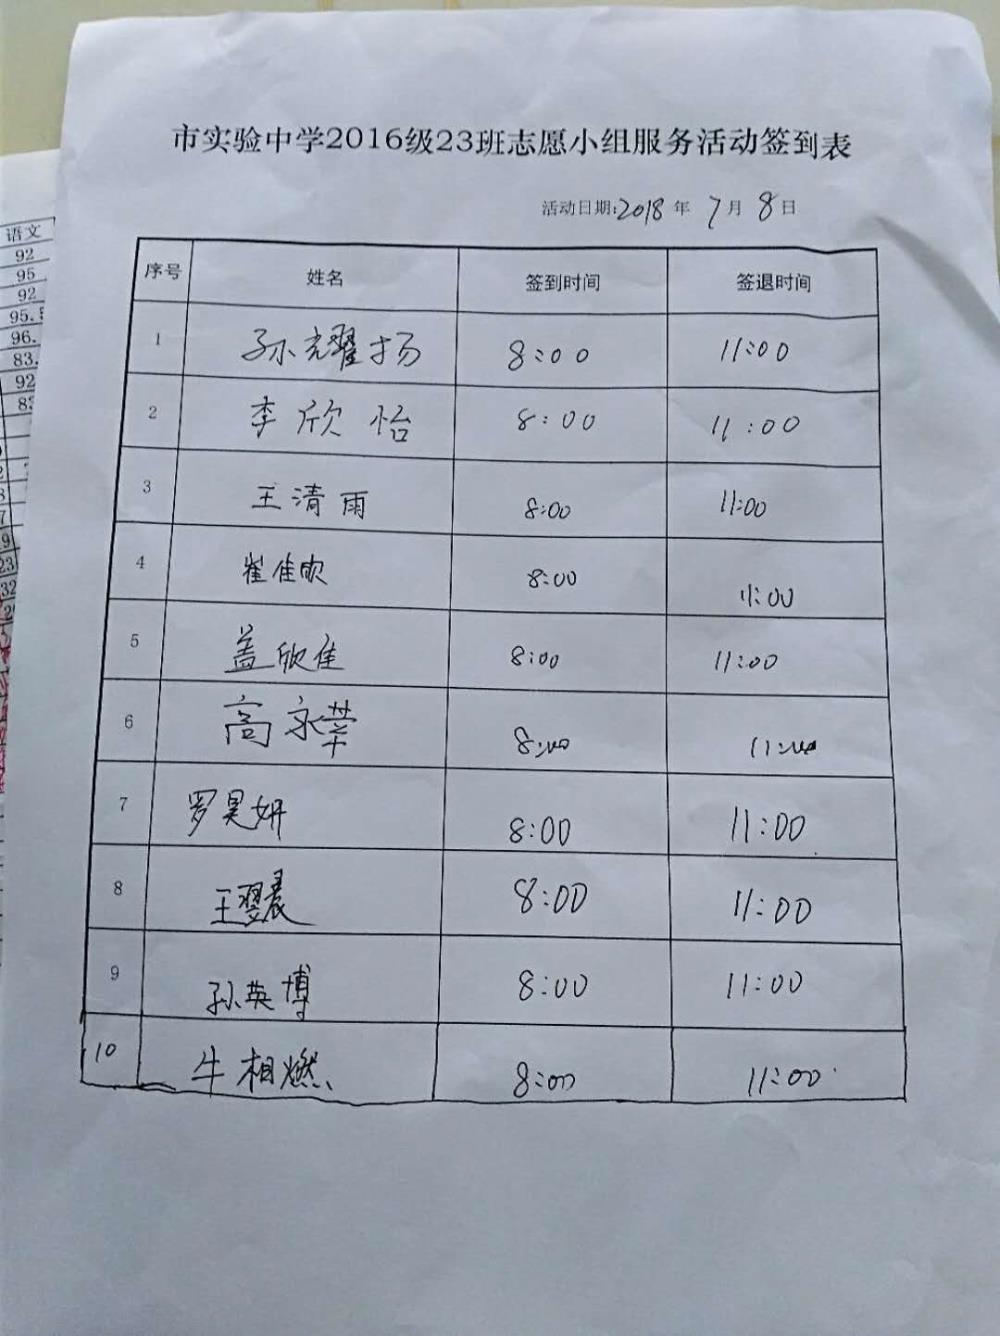 市实验中学2016级23班志愿小组服务活动签到表
活动日期:2018年7月8日
序号 姓名 签到时间 签退时间
1 孙耀扬 8:00 11:00
2 李欣怡 8:00 11:00
3 王清雨 8:00 11:00
4 崔佳欧 8:00 11:00
5 盖欣佳 8:00 11:00
6 高永莘 8:00 11:00
7 罗昊妍 8:00 11:00
8 王翌晨 8:00 11:00
9 孙英博 8:00 11:00
10 牛相燃 8:00 11:00
语文
92
95
92
95.
96.
83.
92